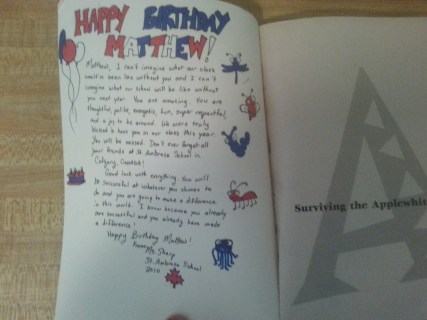 HAPPY BIRTHDAY
MATTHEW!
Matthew, I can't imagine what our class
would've been like without you and I can't
imagine what our school will be like without
you next year. You are amazing. You are
thoughtful, polite, energetic, fun, super respectful,
and a joy to be around. We were truly
blessed to have you in our class this year.
You will be missed. Don't ever forget all
your friends at St. Ambrose School in
Calgary, Canada!
Good luck with everything. You will
be successful at whatever you choose to
do and you are going to make a difference
in this world. I know because you already
are successful and you already have made
a difference!
Happy Birthday Matthew!
From Mr. Sharp
St. Ambrose School
2010
Surviving the Applewhit